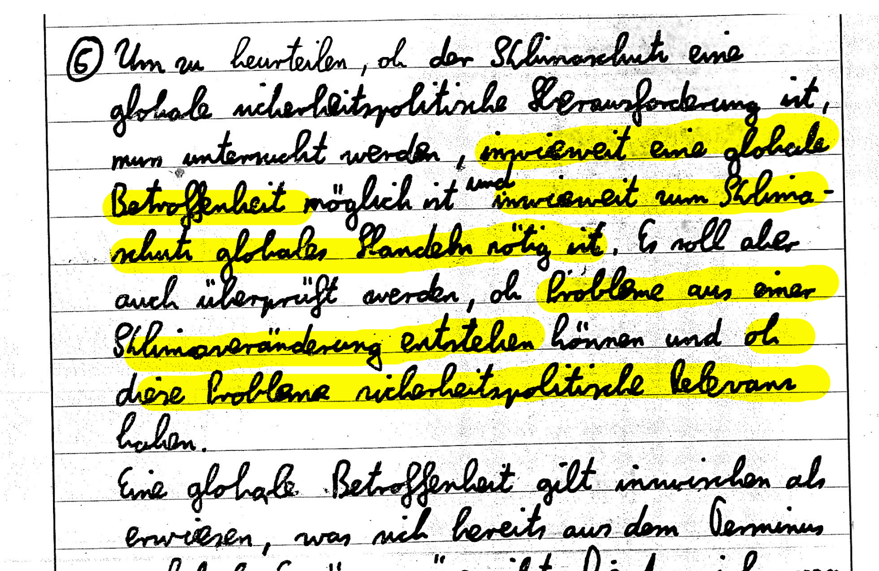 ⑥ Um zu beurteilen, ob der Klimaschutz eine
globale sicherheitspolitische Herausforderung ist,
muss untersucht werden, inwieweit eine globale
Betroffenheit möglich ist und inwieweit zum Klima-
schutz globales Handeln nötig ist. Es soll aber
auch überprüft werden, ob Probleme aus einer
Klimaveränderung entstehen können und ob
diese Probleme sicherheitspolitische Relevanz
haben.
Eine globale Betroffenheit gilt inzwischen als
erwiesen, was sich bereits aus dem Terminus